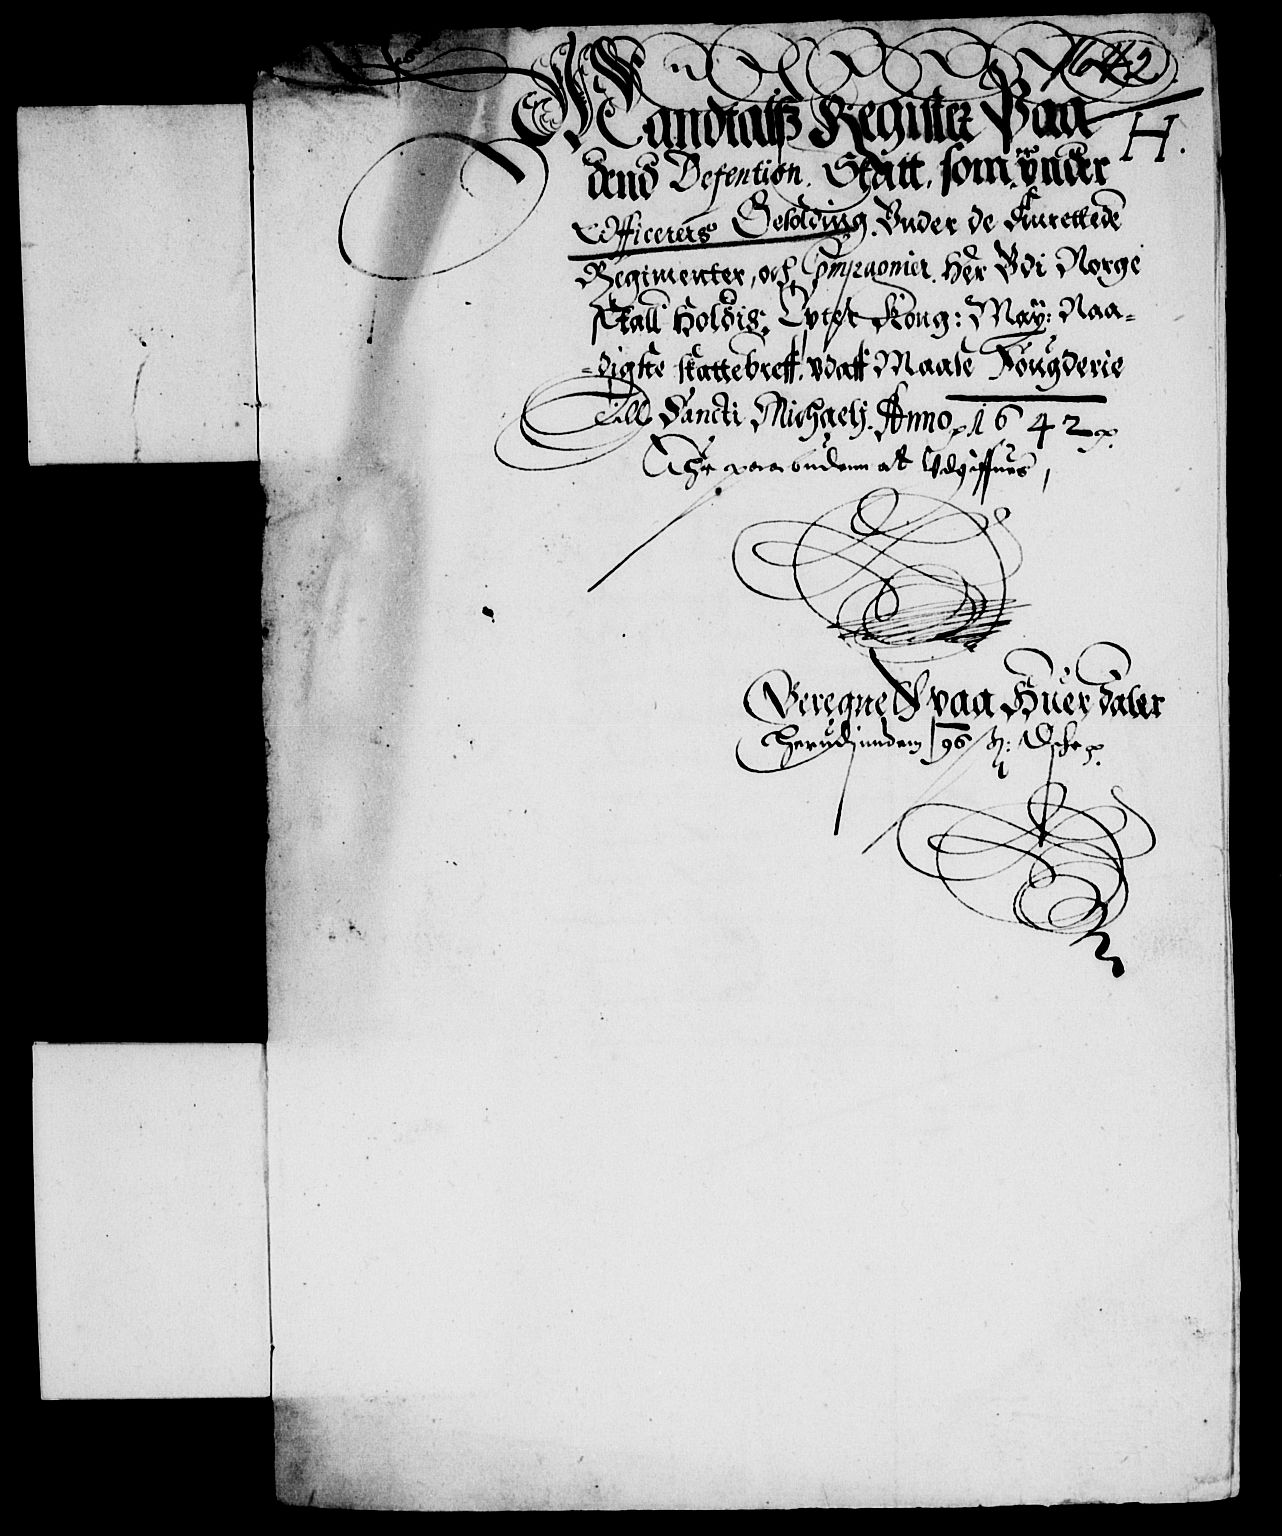 1642.
H.
Mandtalsz Register Paa
dend Defention. Skatt, som ünder
Officerers Besolding. Vnder de Anrettede
Regimenter, och Compagnier. Her Vdi Norge
skall Holdis, Kong: May: Naa=
=digste skattebreff, vdaff Maale Fougderie
Till Sancti Michaelj. Anno 1642
paabudenn at Vdgiffues,
Beregnedt paa Huer daler
96